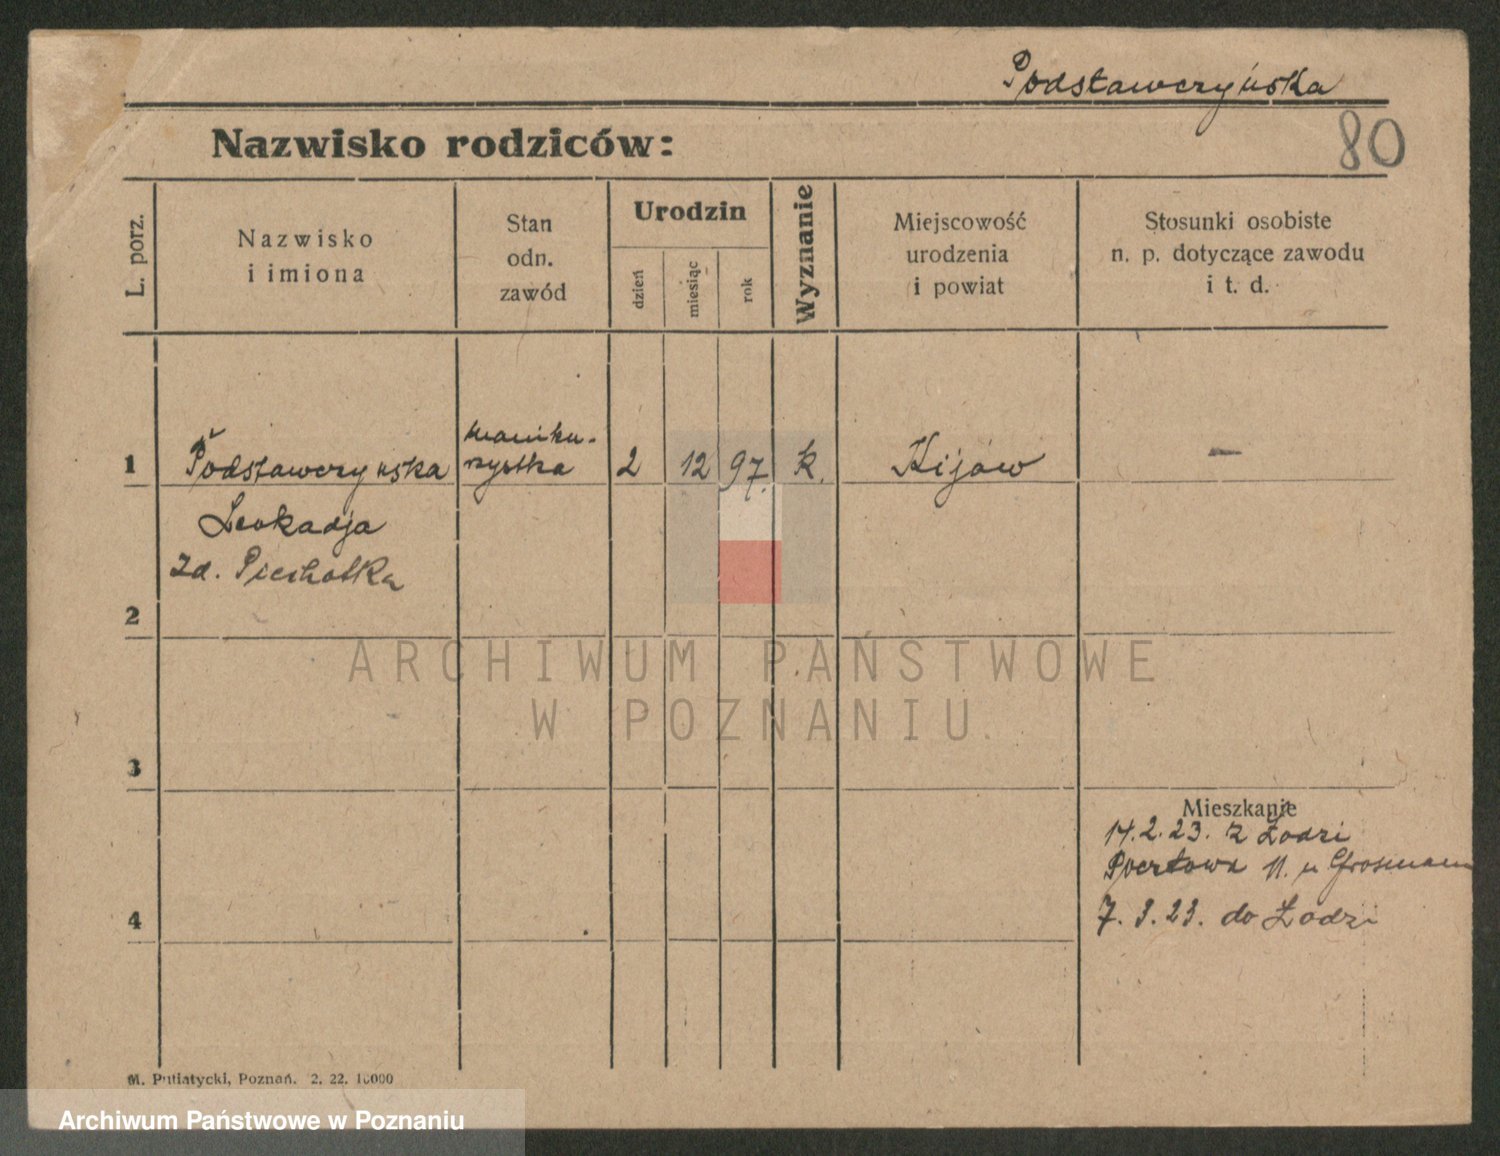 Podstawczyńska
80
Nazwisko rodziców:
L. porz.
Nazwisko
i imiona
Stan
odn.
zawód
Urodzin
dzień
miesiąc
rok
Wyznanie
Miejscowość
urodzenia
i powiat
Stosunki osobiste
n. p. dotyczące zawodu
i t. d.
maniku-
1 Podstawczyńska rzystka 2 12 97. k. Kijów —
Leokadja
zd. Piechotka
2
ARCHIWUM PAŃSTWOWE
W POZNANIU
3
Mieszkanie
14.2.23. z Łodzi
Pocztowa 11. u Grosmann
4 7. 3. 23. do Łodzi
M. Putiatycki, Poznań. 2. 22. 10000
Archiwum Państwowe w Poznaniu